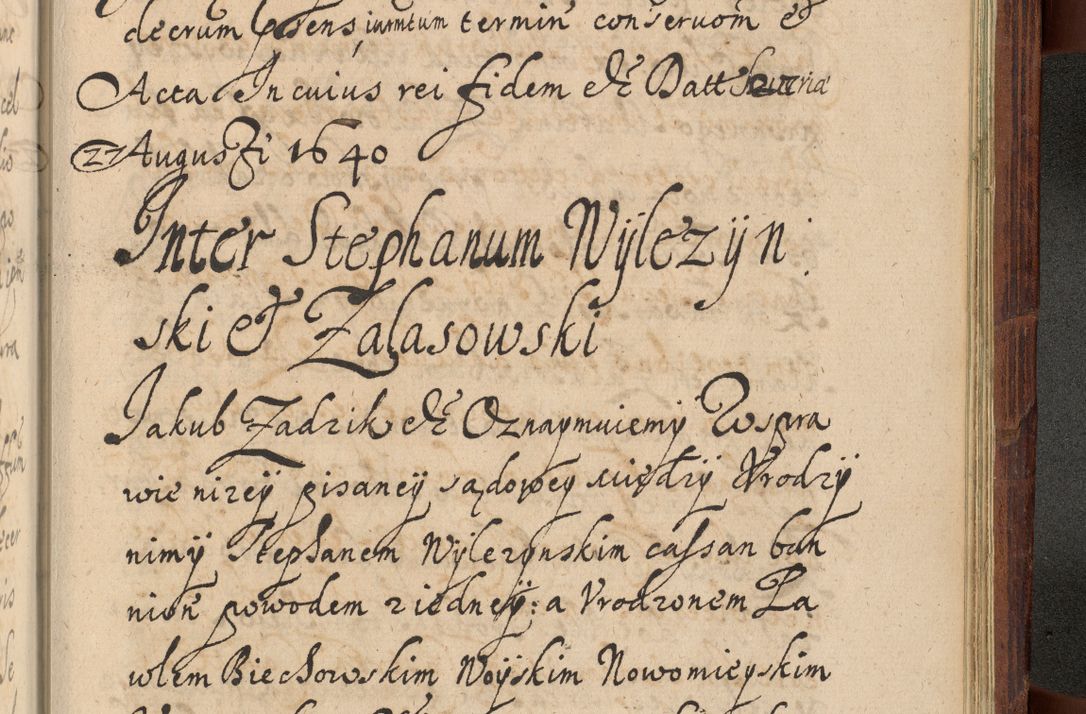 decrum psens iurmtum termin conseruom et
Acta In cuius rei fidem etc Datt
27 Augusti 1640
Inter Stephanum Wÿlezÿn
ski et Zalasowski
Jakub Zadzik etc Oznaymuiemÿ Wspra
wie nizeÿ pisaneÿ sądoweÿ miedzÿ Vrodzÿ
nimÿ Stephanem Wÿlezynskim cassan ban
nion powodem z iedneÿ: a Vrodzonem Pa
wlem Biechowskim Woÿskim Nowomieyskim